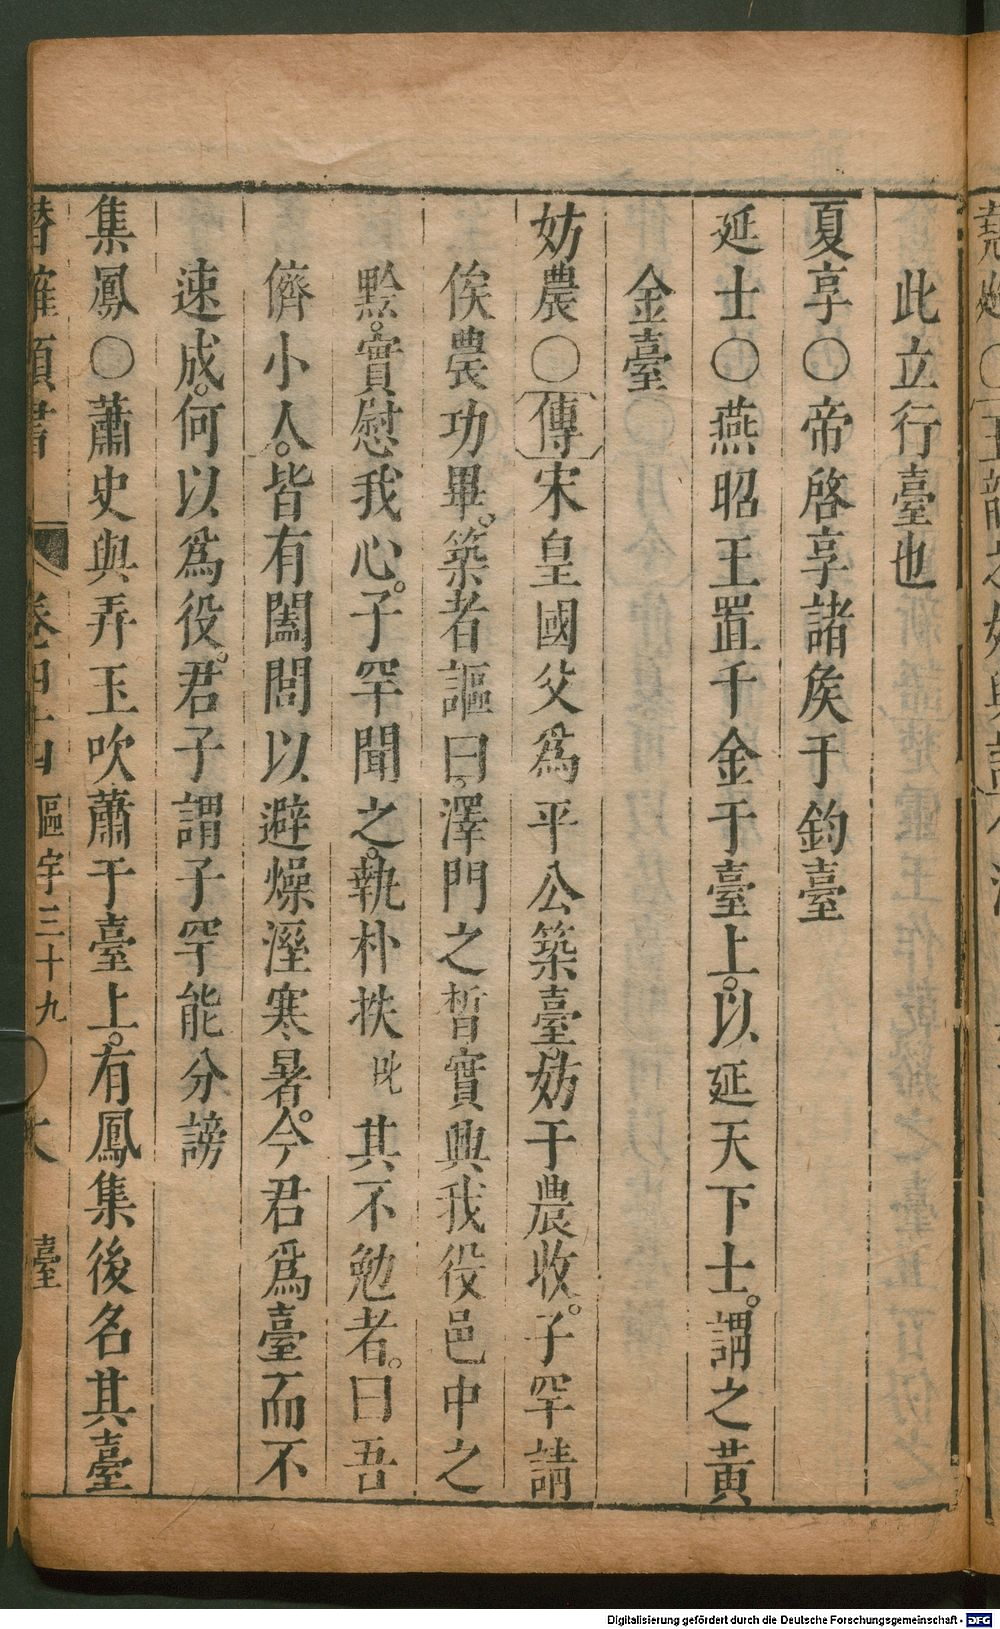 此立行臺也
夏享○帝啓享諸矦于鈞臺
延士○燕昭王置千金于臺上。以延天下士。謂之黃
金臺
妨農○傳宋皇國父爲平公築臺。妨于農收。子罕請
俟農功畢。築者謳曰。澤門之皙實興我役邑中之
黔。實慰我心。子罕聞之。執朴抶其不勉者。曰吾
儕小人。皆有闔閭以避燥溼寒暑。今君爲臺而不
速成。何以爲役。君子謂子罕能分謗
集鳳○蕭史與弄玉吹蕭于臺上。有鳳集後名其臺
潜確類書 卷四十四 區宇三十九 臺
Digitalisierung gefördert durch die Deutsche Forschungsgemeinschaft - DFG